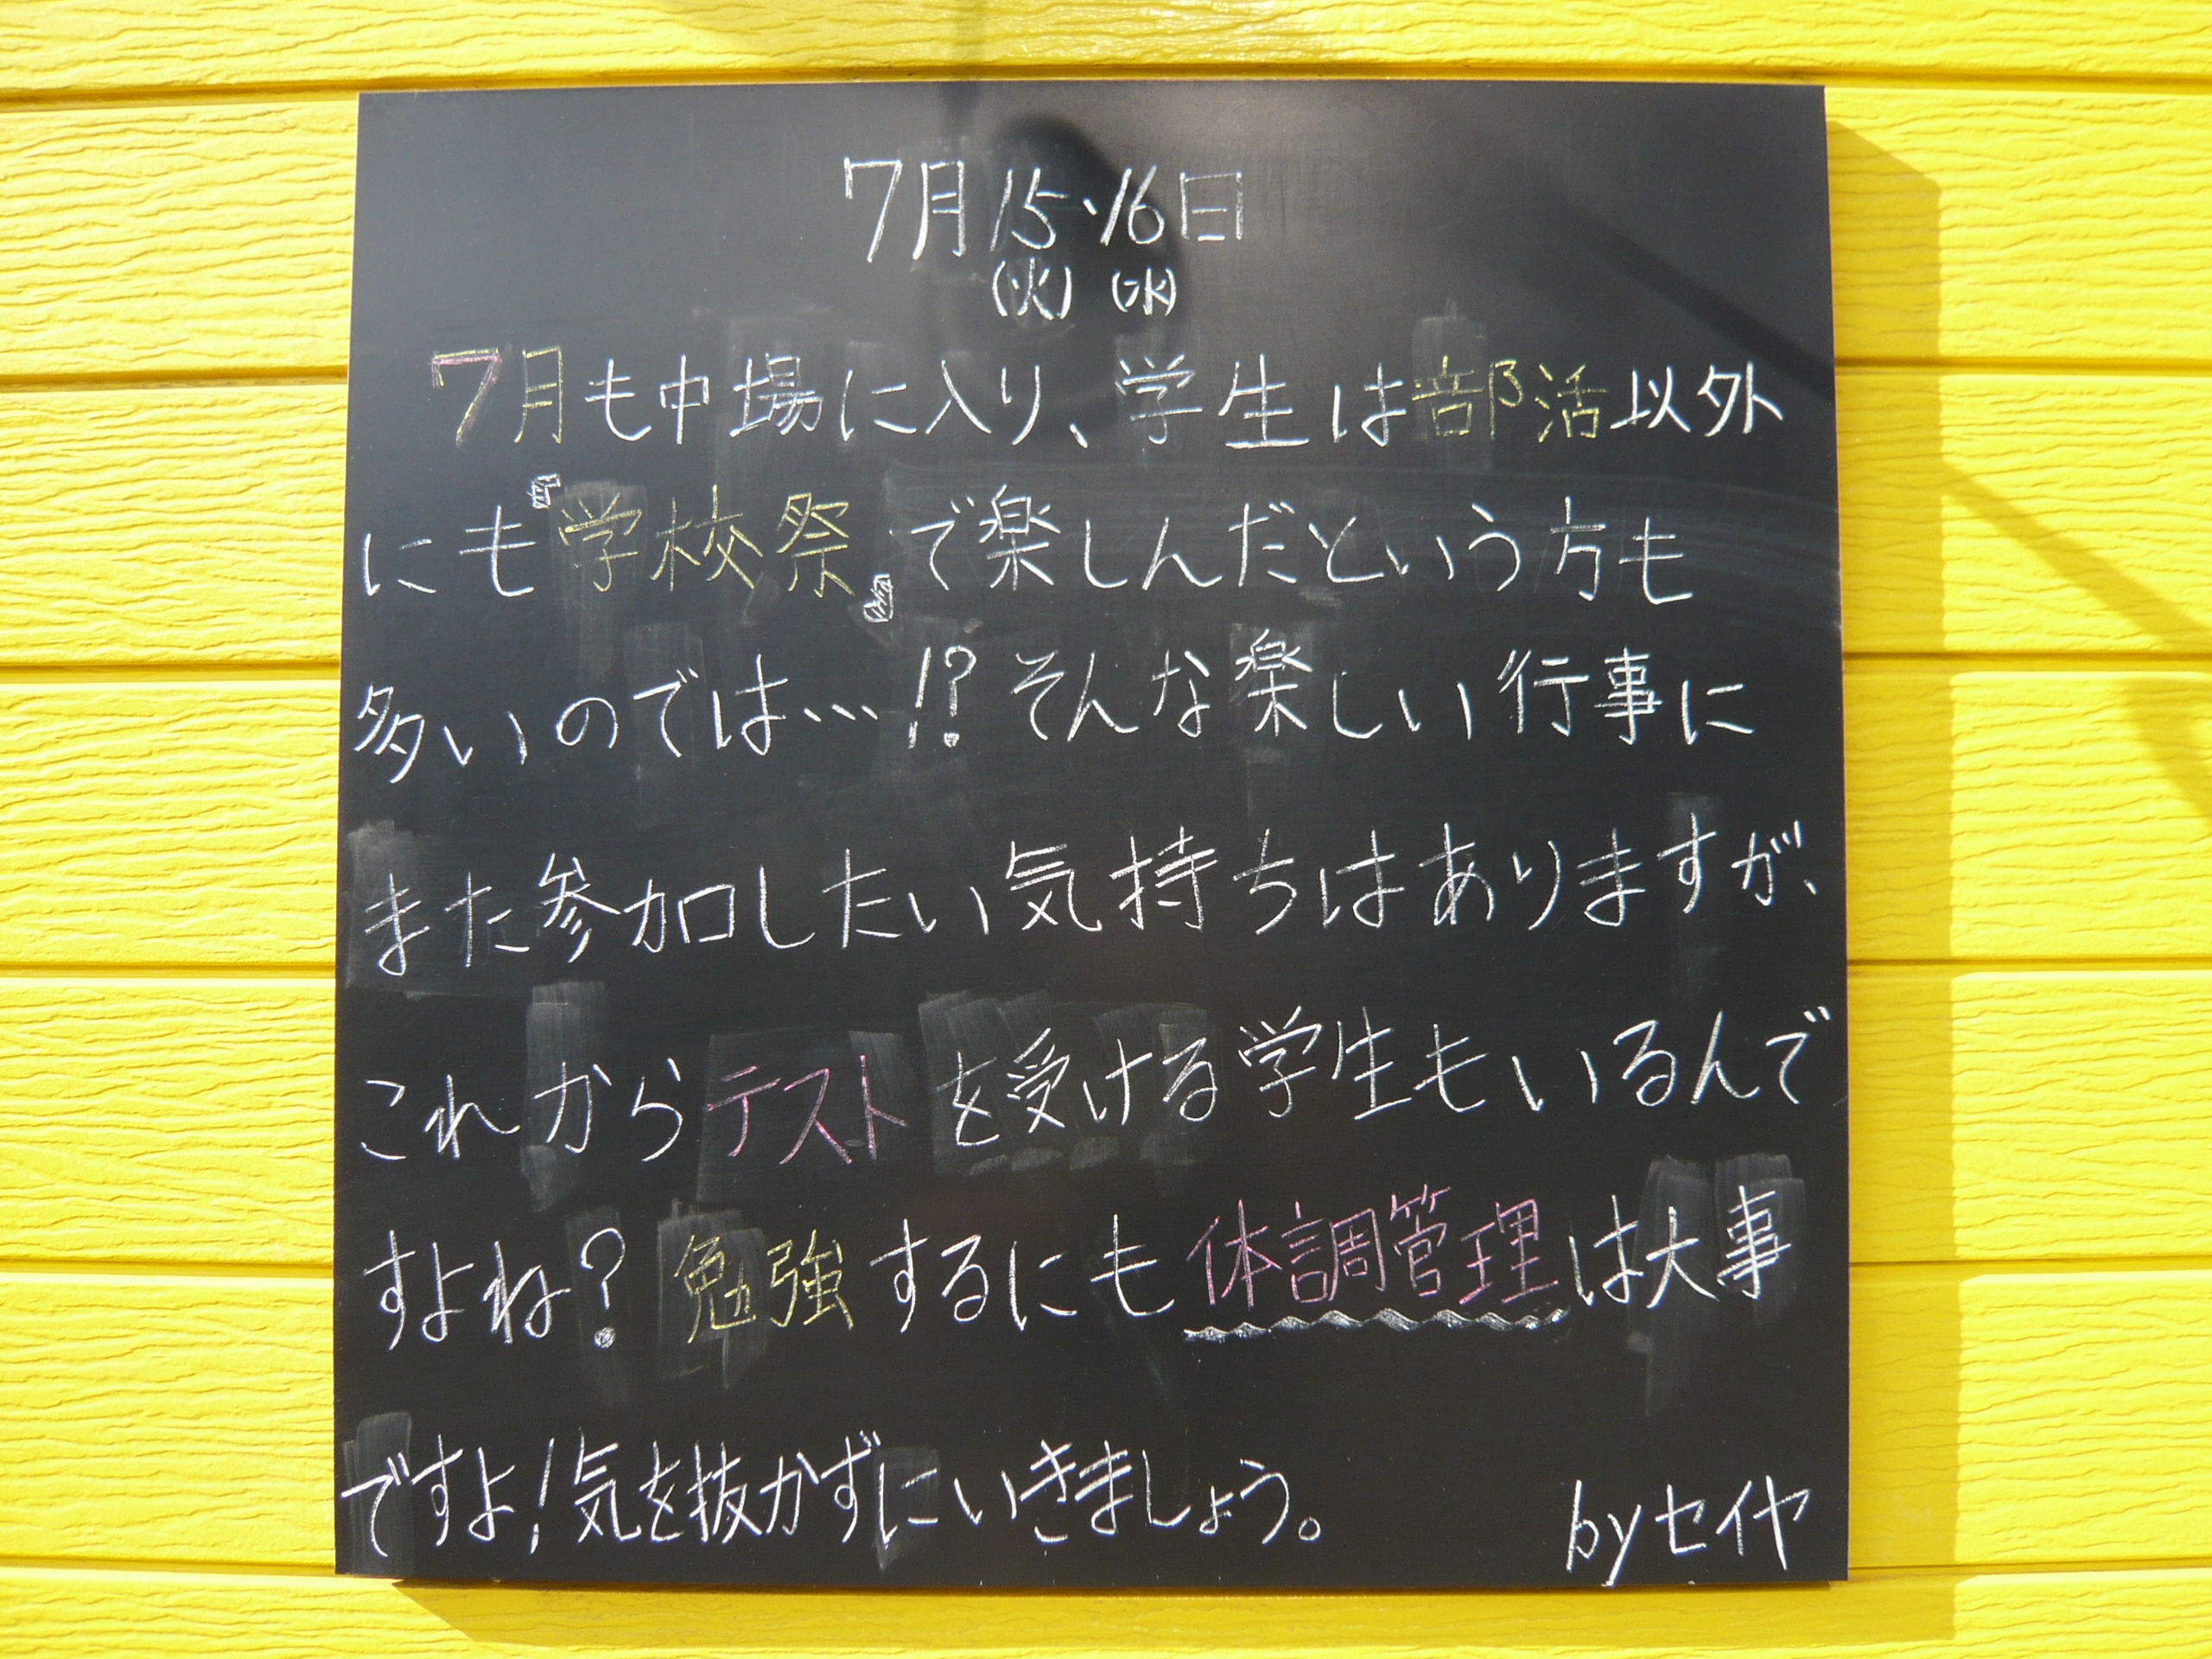 7月15・16日
(火) (水)
7月も中場に入り、学生は部活以外
にも『学校祭』で楽しんだという方も
多いのでは…!?そんな楽しい行事に
また参加したい気持ちはありますが、
これからテストを受ける学生もいるんで
すよね?勉強するにも体調管理は大事
ですよ!気を抜かずにいきましょう。 byセイヤ